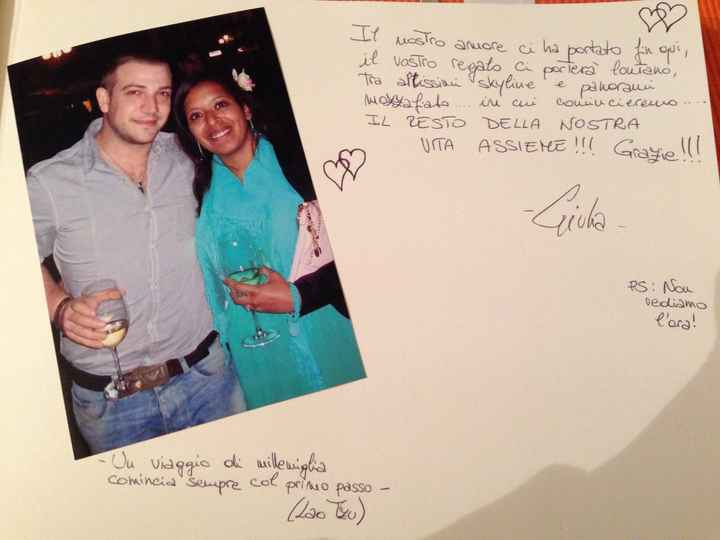 Il nostro amore ci ha portato fin qui,
il vostro regalo ci porterà lontano,
tra altissimi skyline e panorami
mozzafiato .... in cui cominceremo ....
IL RESTO DELLA NOSTRA
VITA ASSIEME!!! Grazie!!!
- Giulia -
PS: Non
vediamo
l'ora!
- Un viaggio di millemiglia
comincia sempre col primo passo -
(Lao Tzu)